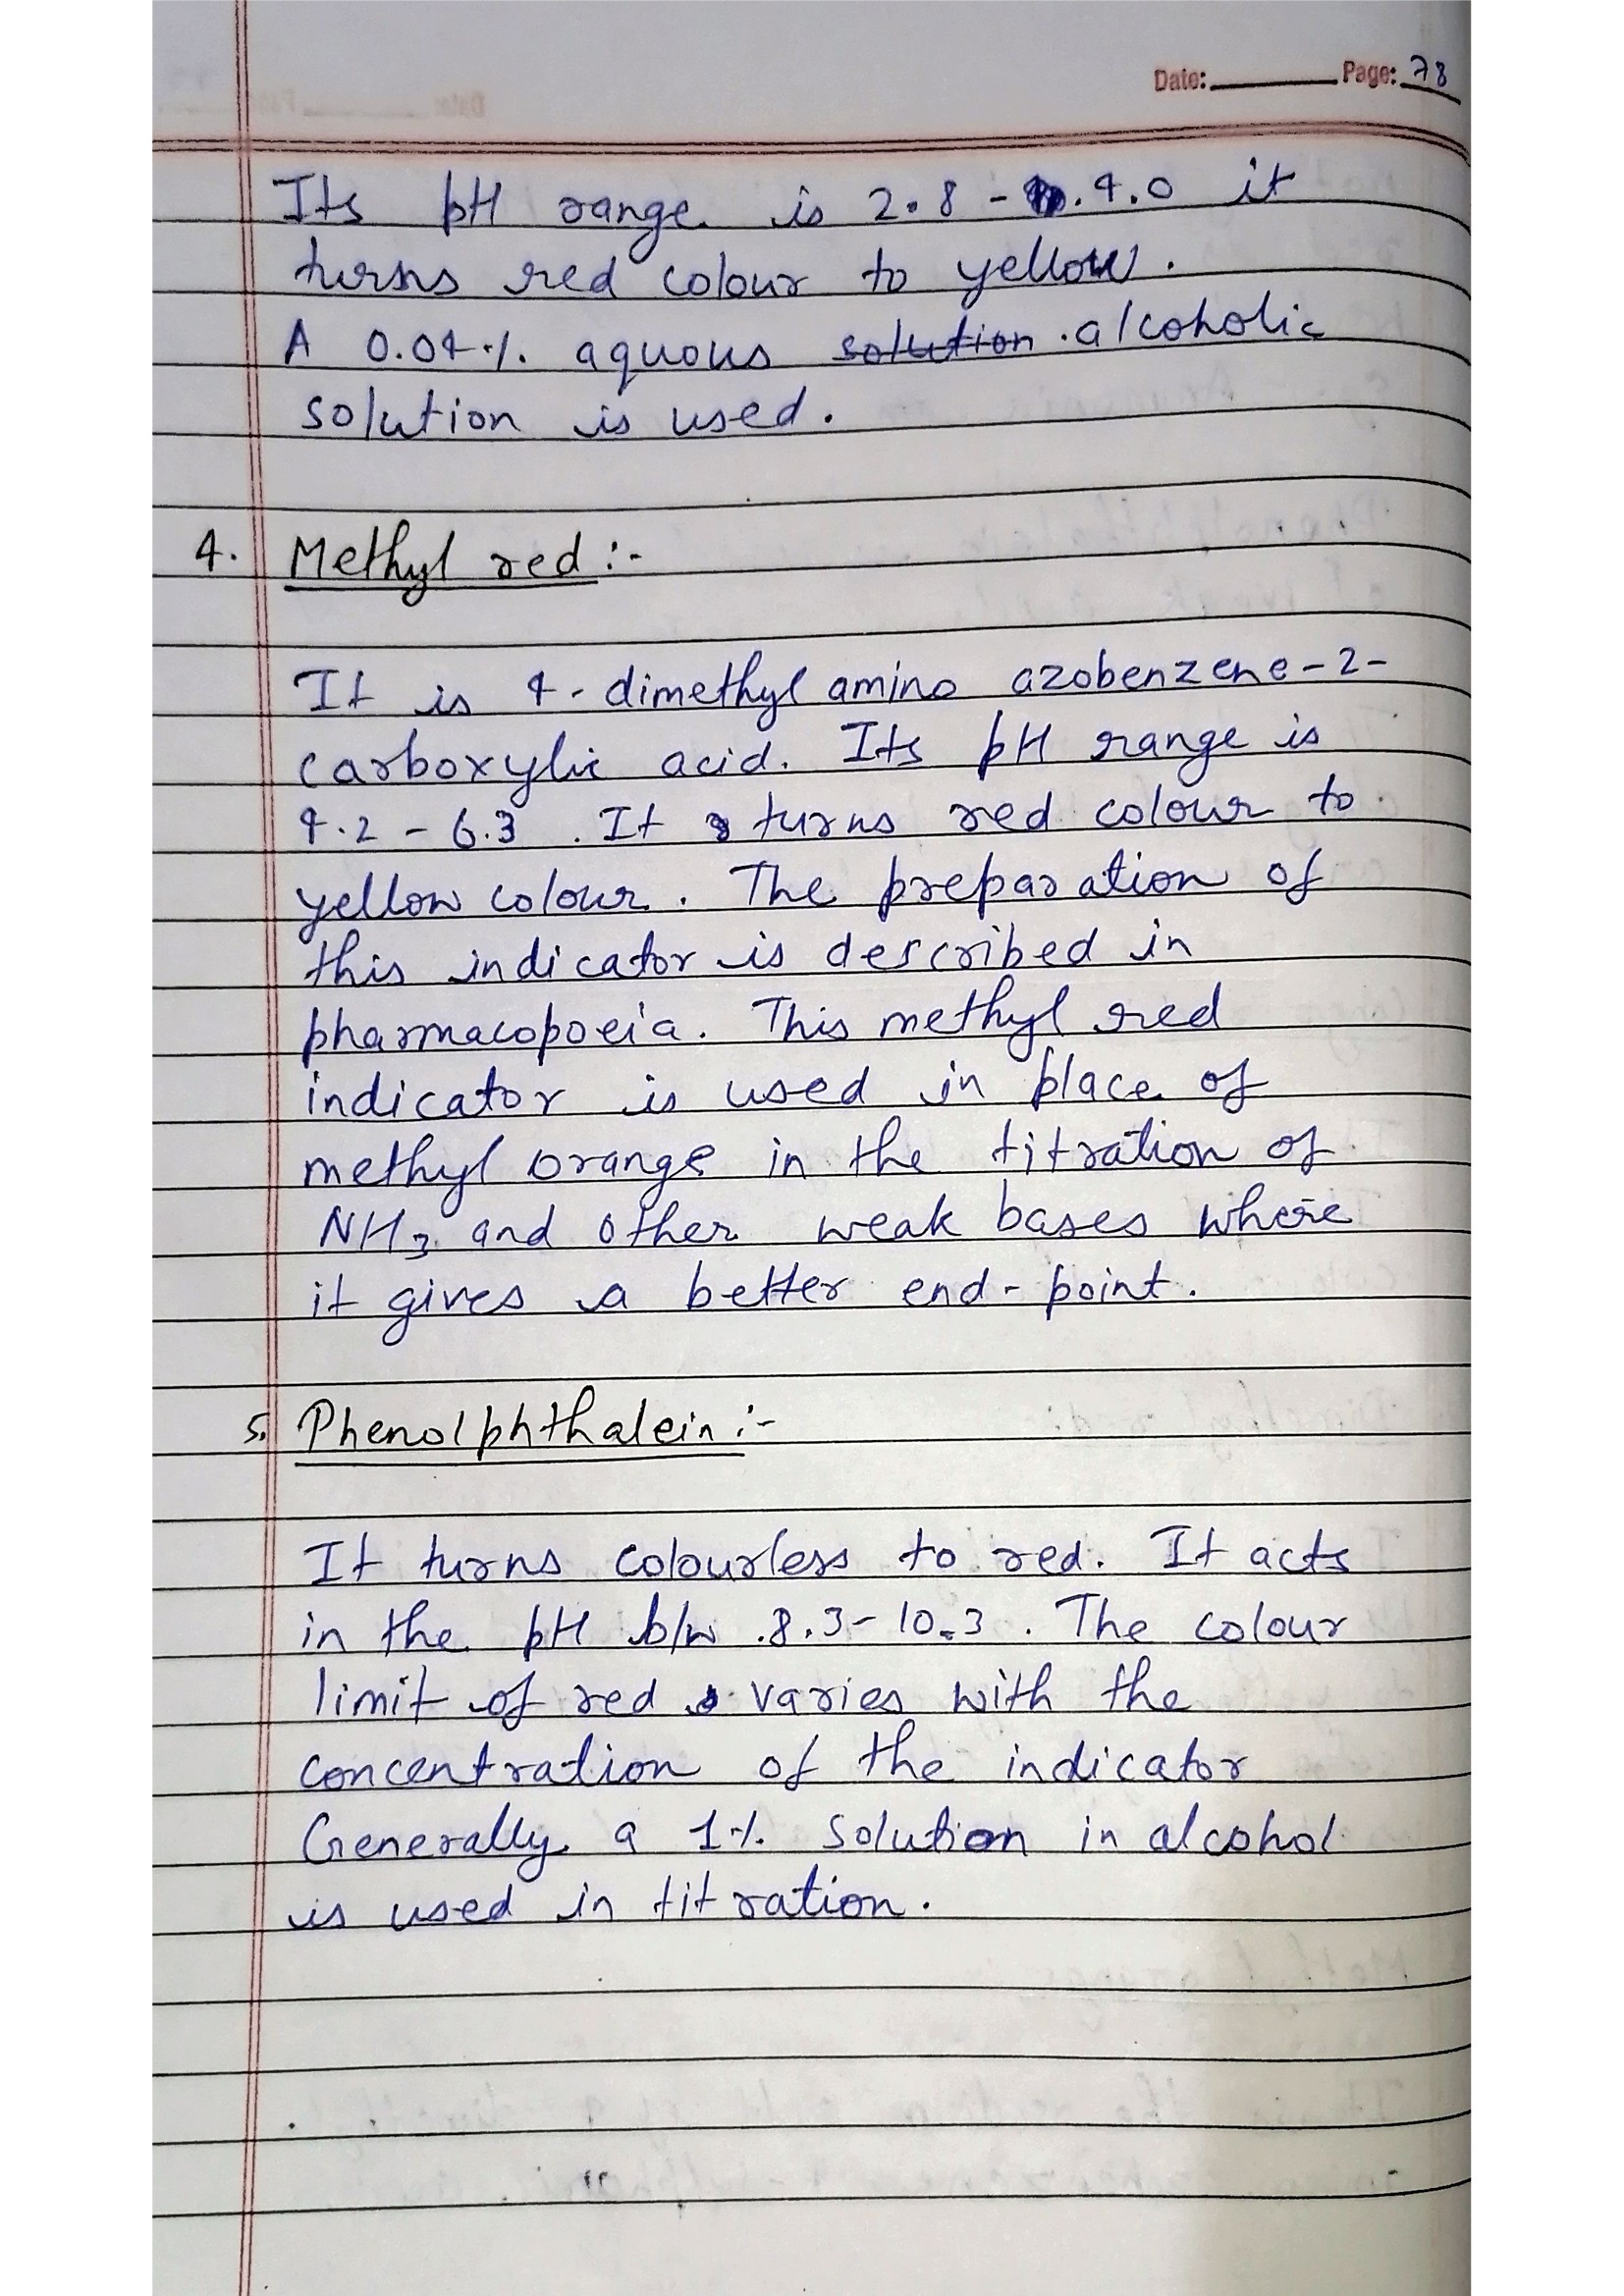 Date: Page: 78
Its pH range is 2.8 - 4.0 it
turns red colour to yellow.
A 0.04% aquous solution alcoholic
solution is used.
4. Methyl red :-
It is 4-dimethyl amino azobenzene-2-
carboxylic acid. Its pH range is
4.2 - 6.3. It turns red colour to
yellow colour. The preparation of
this indicator is described in
pharmacopoeia. This methyl red
indicator is used in place of
methyl orange in the titration of
NH3 and other weak bases where
it gives a better end-point.
5. Phenolphthalein :-
It turns colourless to red. It acts
in the pH b/w 8.3-10.3. The colour
limit of red varies with the
concentration of the indicator
Generally a 1% solution in alcohol
is used in titration.